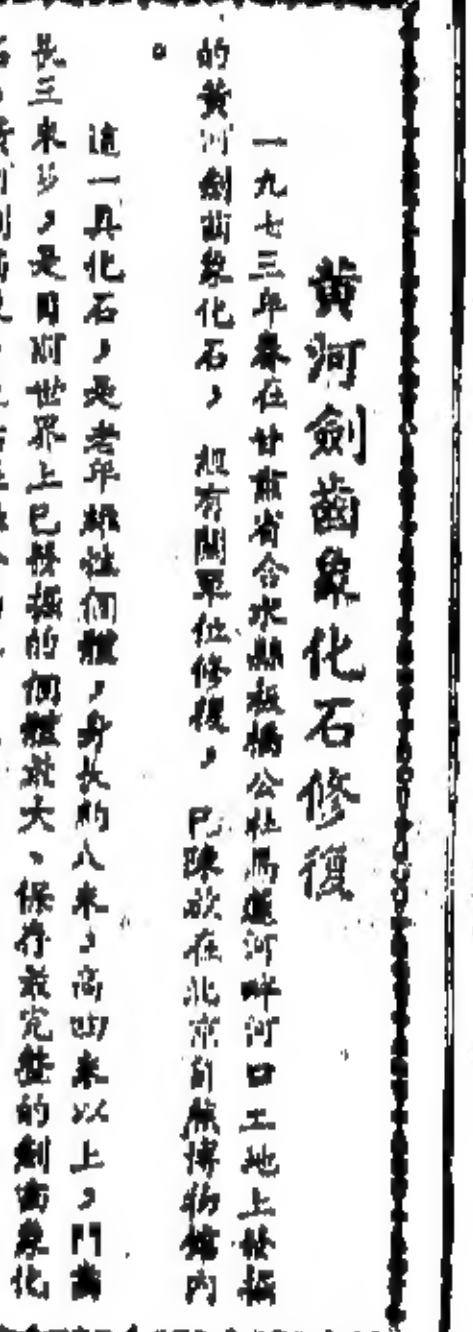 黄河劍齒象化石修復
一九七三年春在甘肅省合水縣板橋公社馬蓮河畔河口土地上發掘
的黄河劍齒象化石，經有關單位修復，已陳放在北京自然博物館內
。
這一具化石，是老年雄性個體，身長約八米，高四米以上，門齒
長三米多，是目前世界上已發掘的個體最大、保存最完整的劍齒象化